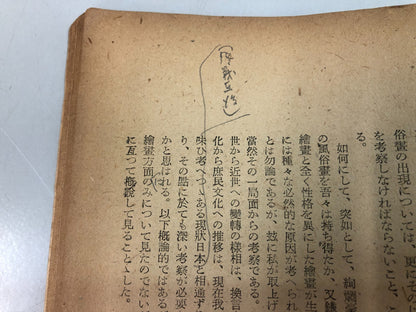 俗畫の出現については、更にそ
を考察しなければならないこと、こ
る。
如何にして、突如として、絢爛
の風俗畫を吾々は持ち得たか、又
繪畫と全く性格を異にした繪畫が生
には種々な必然的な原因が考へられ
とは勿論であるが、玆に私が取上げ
當然その一局面からの考察である。
世から近世への變轉の樣相は、換言
化から庶民文化への推移は、現在我
味ひ考へつゝある現狀日本と相通ず
り、その點に於ても深い考察が必要
かと思はれる。以下概論的ではある
繪畫方面のみについて見たのでない
に亙つて概觀して見ることゝした。